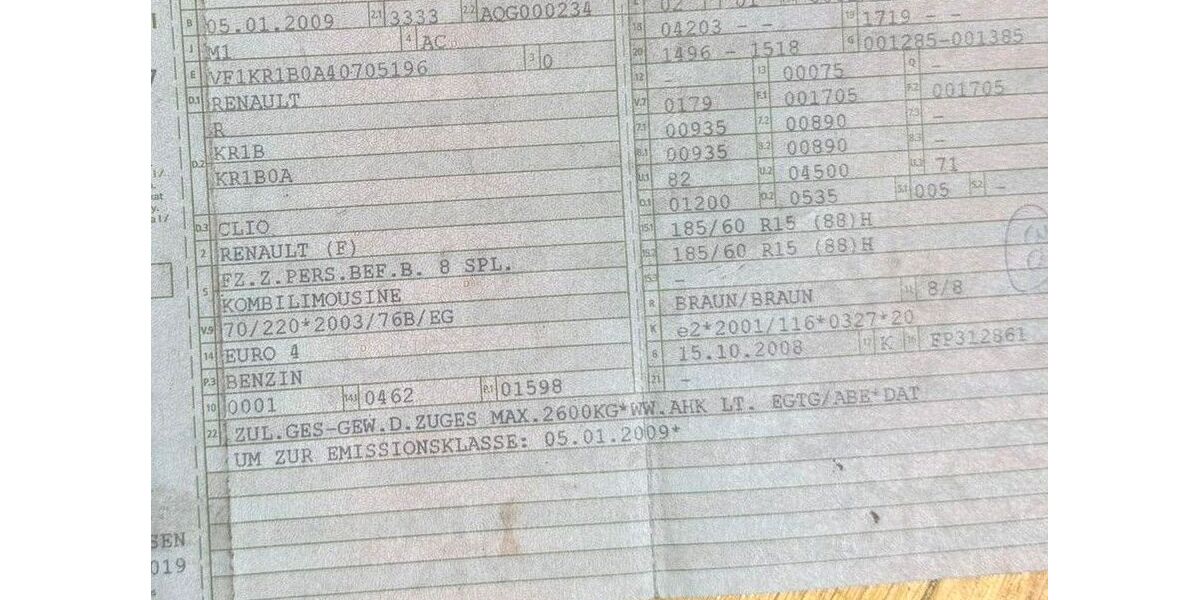 B 05.01.2009 2.1 3333 2.2 AOG000234
J M1 4 AC
E VF1KR1B0A40705196 3 0
D.1 RENAULT
R
D.2 KR1B
KR1B0A
D.3 CLIO
2 RENAULT (F)
5 FZ.Z.PERS.BEF.B. 8 SPL.
KOMBILIMOUSINE
V.9 70/220*2003/76B/EG
14 EURO 4
P.3 BENZIN
10 0001 14.1 0462 P.1 01598
22 ZUL.GES-GEW.D.ZUGES MAX.2600KG*WW.AHK LT. EGTG/ABE*DAT
UM ZUR EMISSIONSKLASSE: 05.01.2009*
L 02 01
18 04203 - - 19 1719 - -
20 1496 - 1518 G 001285-001385
12 - 13 00075 Q -
V.7 0179 F.1 001705 F.2 001705
7.1 00935 7.2 00890 7.3 -
8.1 00935 8.2 00890 8.3 -
U.1 82 U.2 04500 U.3 71
O.1 01200 O.2 0535 S.1 005 S.2 -
15.1 185/60 R15 (88)H
15.2 185/60 R15 (88)H
15.3 -
R BRAUN/BRAUN 11 8/8
K e2*2001/116*0327*20
6 15.10.2008 17 K 16 FP312861
21 -
SEN
019